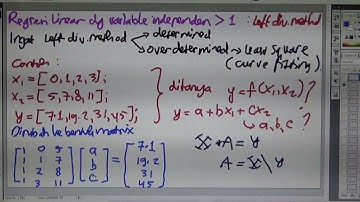 Regresi Linear dg variable independen > 1 : Left div. method
Ingat Left div. method → determined
→ overdetermined → Least Square
(curve fitting).
Contoh :
x₁ = [0,1,2,3];
x₂ = [5,7,8,11];
y = [7.1,19.2,31,45];
ditanya y = f(x₁,x₂)?
y = a + bx₁ + cx₂
↳ a,b,c?
[1 0 5; 1 1 7; 1 2 8; 1 3 11] [a; b; c] = [7.1; 19.2; 31; 45]
X * A = y
A = X \ y